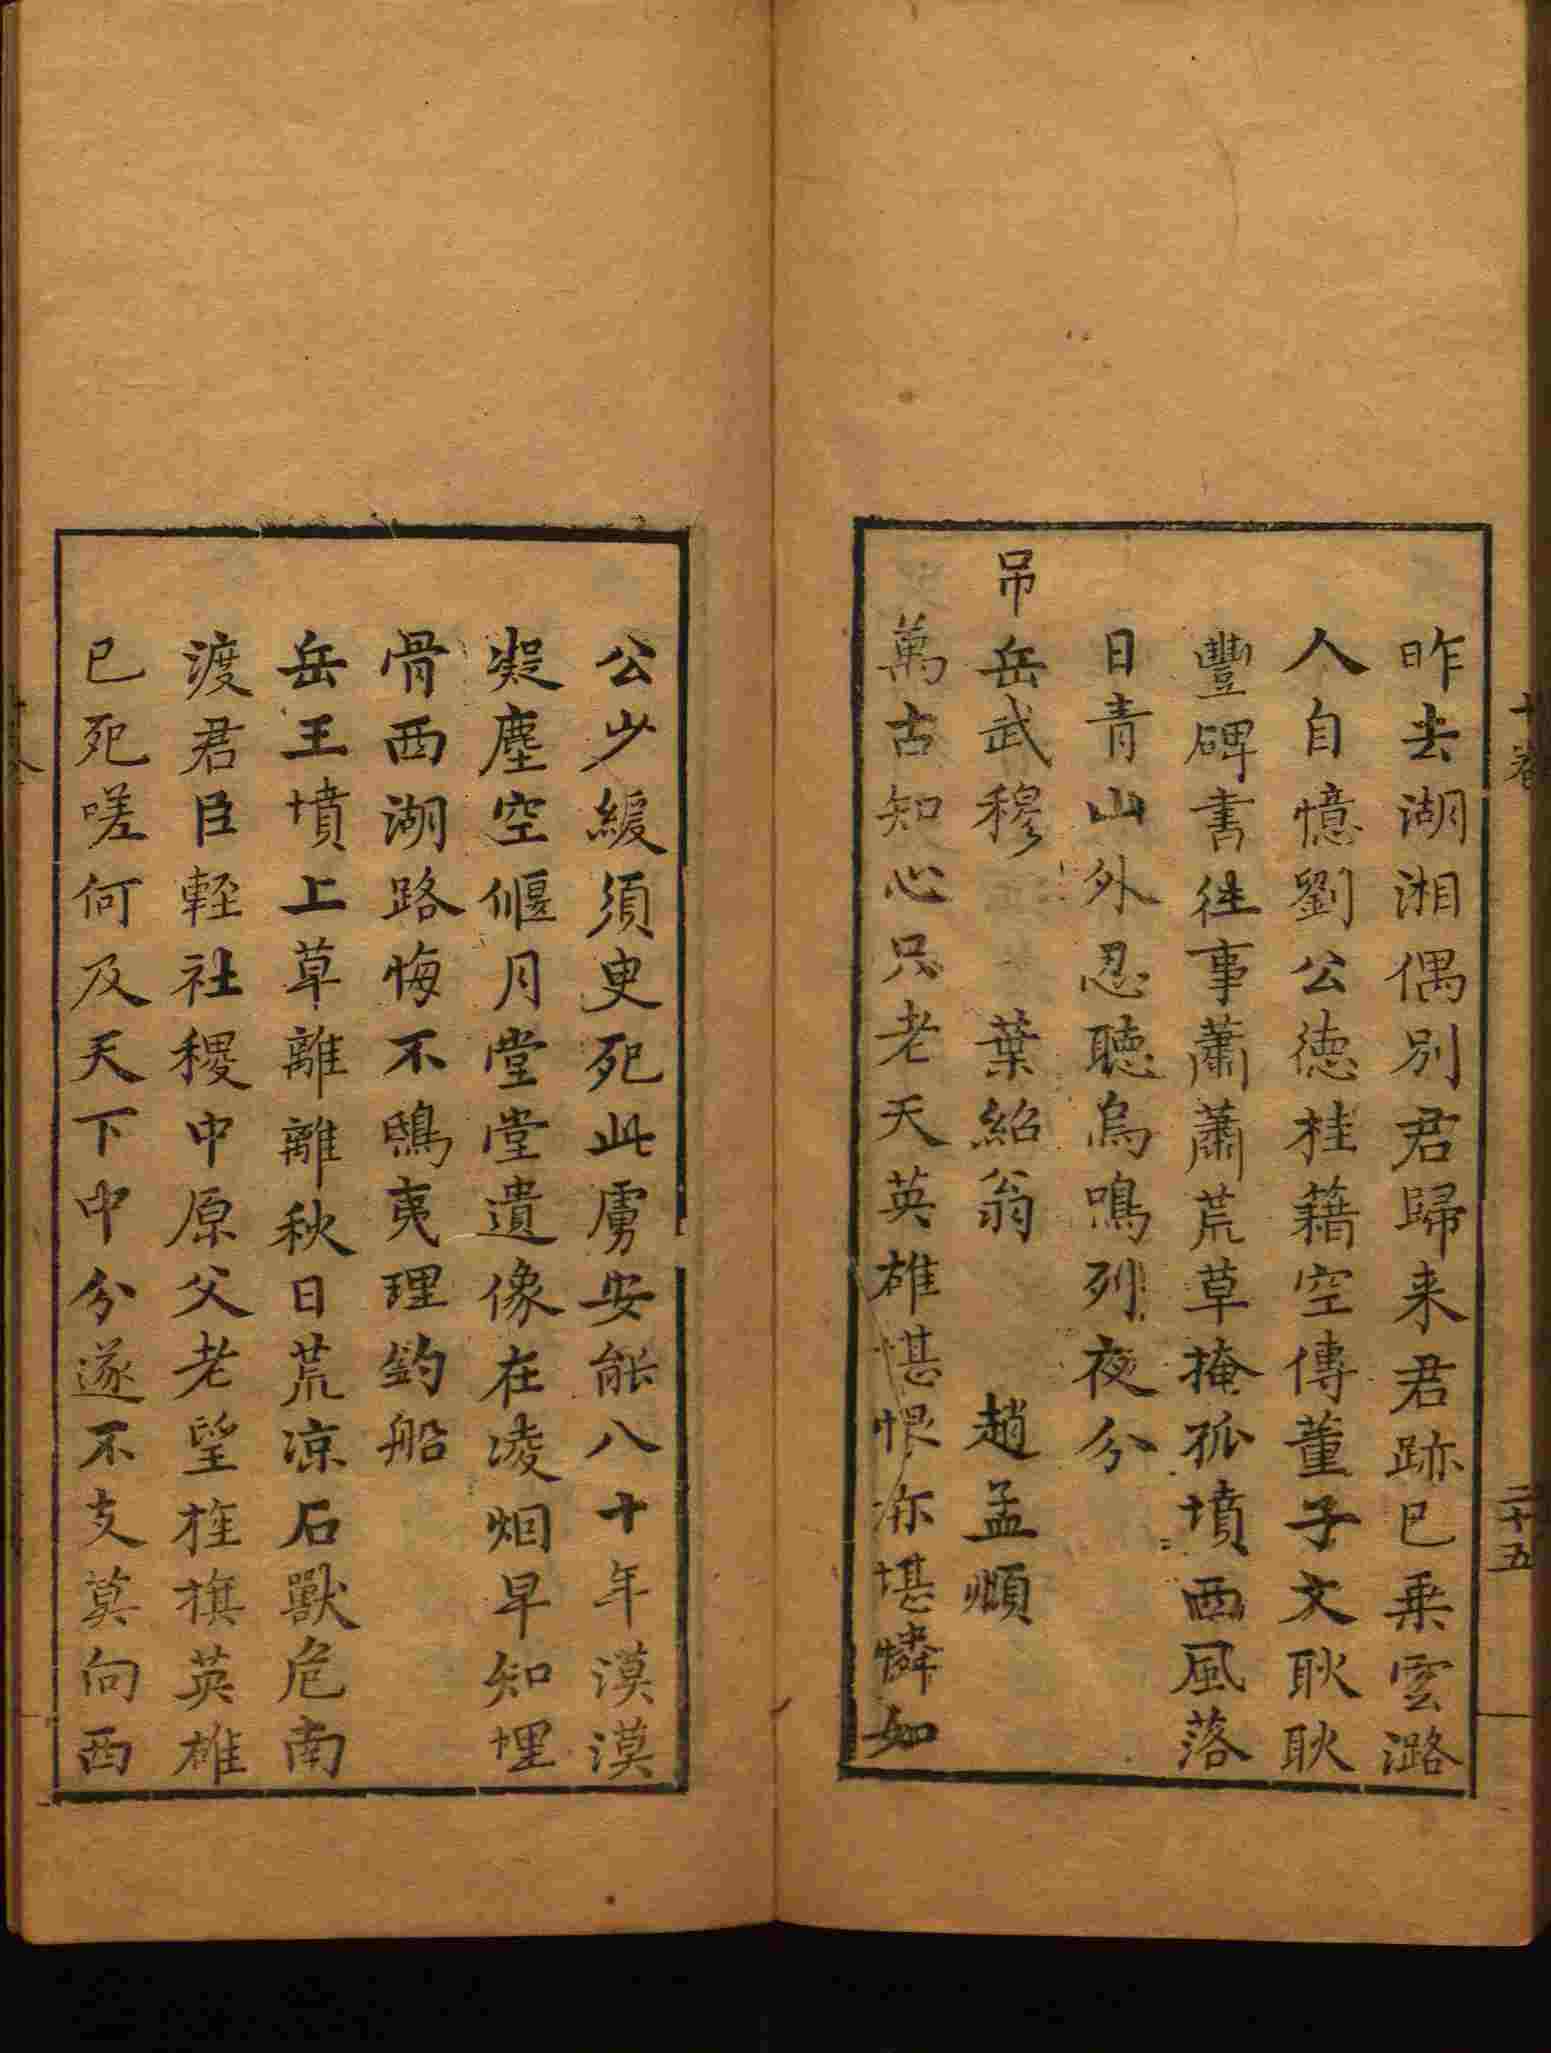 昨去湖湘偶別君歸来君跡已乗雲潞
人自憶劉公德桂籍空傳董子文耿耿
豐碑書徃事蕭蕭荒草掩孤墳西風落
日青山外忍聽烏鳴列夜分
吊岳武穆 葉紹翁 趙孟頫
萬古知心只老天英雄堪恨亦堪憐如
公少緩須臾死此虜安能八十年漠漠
凝塵空偃月堂堂遺像在凌烟早知埋
骨西湖路悔不鴟夷理釣船
岳王墳上草離離秋日荒凉石獸危南
渡君臣輕社稷中原父老望旌旗英雄
已死嗟何及天下中分遂不支莫向西
十卷
二十五